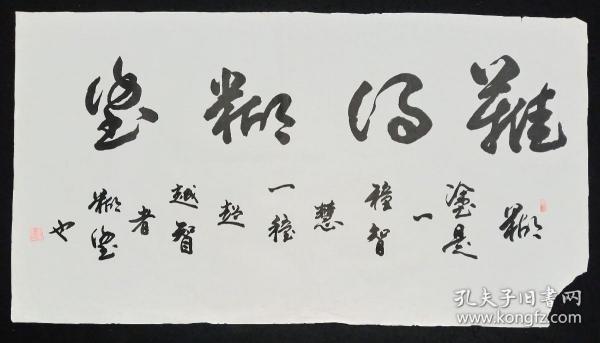 難得糊塗
糊
塗是
一
種智
慧
一種
超
越智
者
糊塗
也
孔夫子旧书网
www.kongfz.com